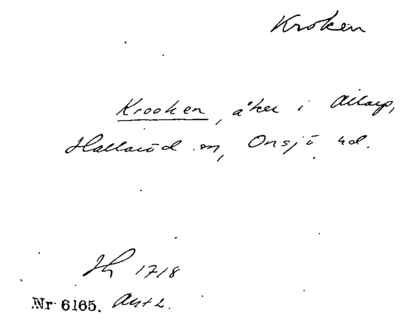 Kroken
Krooken, åker i Allarp,
Hallaröd sn, Onsjö hd.
Jh 1718
Nr 6165. Avt 2.